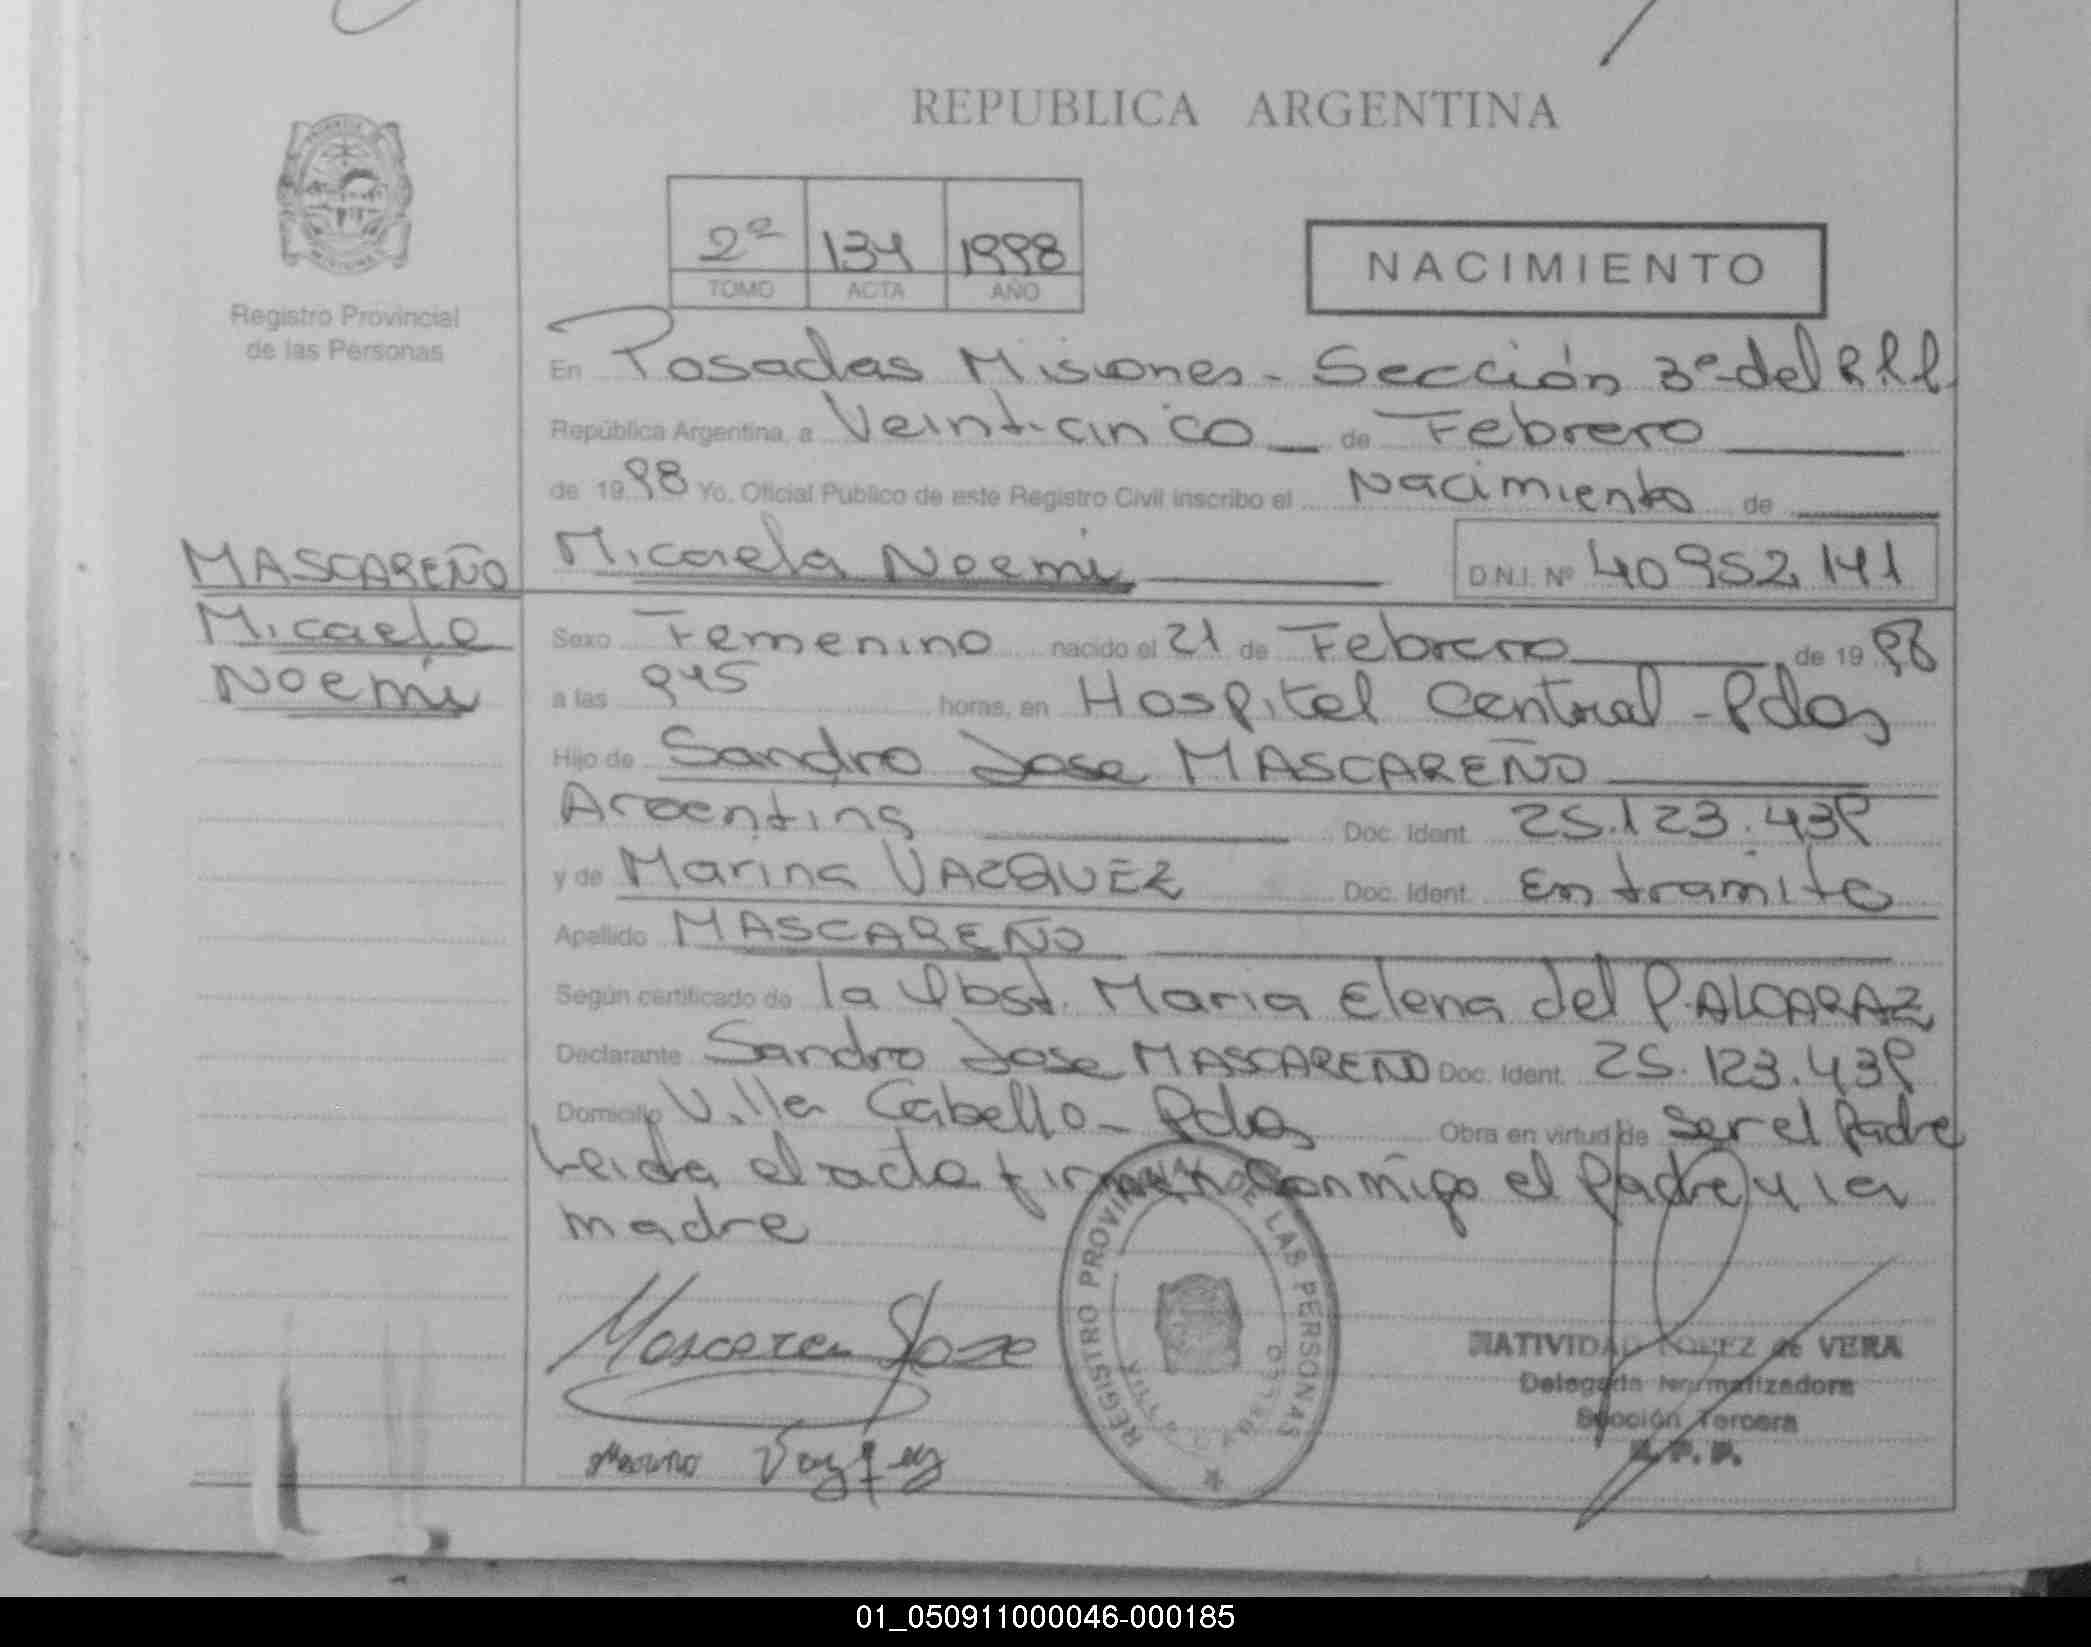 REPUBLICA ARGENTINA
2ª 134 1998
TOMO ACTA AÑO
NACIMIENTO
Registro Provincial
de las Personas
En Posadas Misiones - Sección 3ª del R.P.P.
República Argentina, a Veinticinco de Febrero
de 1998 Yo, Oficial Público de este Registro Civil inscribo el Nacimiento de
MASCAREÑO
Micaela
Noemi
Micaela Noemi D.N.I. Nº 40952141
Sexo Femenino nacido el 21 de Febrero de 1998
a las 945 horas, en Hospital Central - Pdas
Hijo de Sandro Jose MASCAREÑO
Argentina Doc. Ident. 25.123.439
y de Marina VAZQUEZ Doc. Ident. En tramite
Apellido MASCAREÑO
Según certificado de la Obst. Maria Elena del P. ALCARAZ
Declarante Sandro Jose MASCAREÑO Doc. Ident. 25.123.439
Domicilio Villa Cabello - Pdas Obra en virtud de ser el Padre
Leida el acta firman conmigo el Padre y la
madre
Jose
Vazquez
REGISTRO PROVINCIAL DE LAS PERSONAS
VILLA CABELLO
NATIVIDAD LOPEZ de VERA
Delegada Normalizadora
Sección Tercera
R. P. P.
01_050911000046-000185